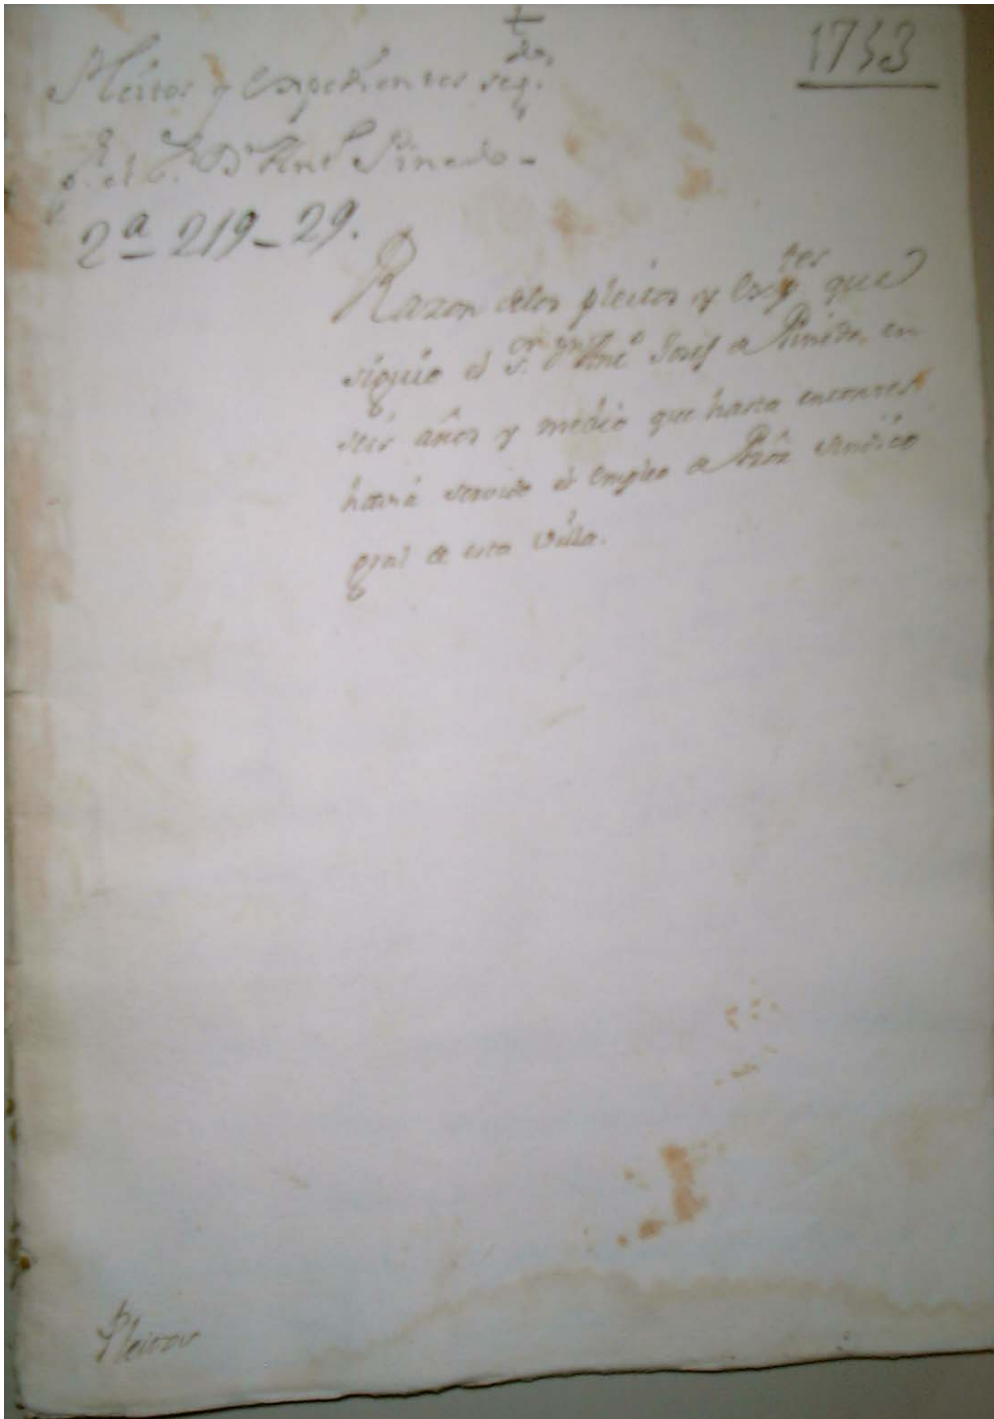 1753
Pleitos y Expedientes seg.dos
p.r el S.r D.n Ant.o Pinedo -
2ª 219-29.
Razon delos pleitos y Exp.tes que
siguio el S.or D.n Ant.o Josef de Pinedo, en
seis años y medio que hasta entonces
havia servido el empleo de Prôr sindico
gral de esta Villa.
Pleitos